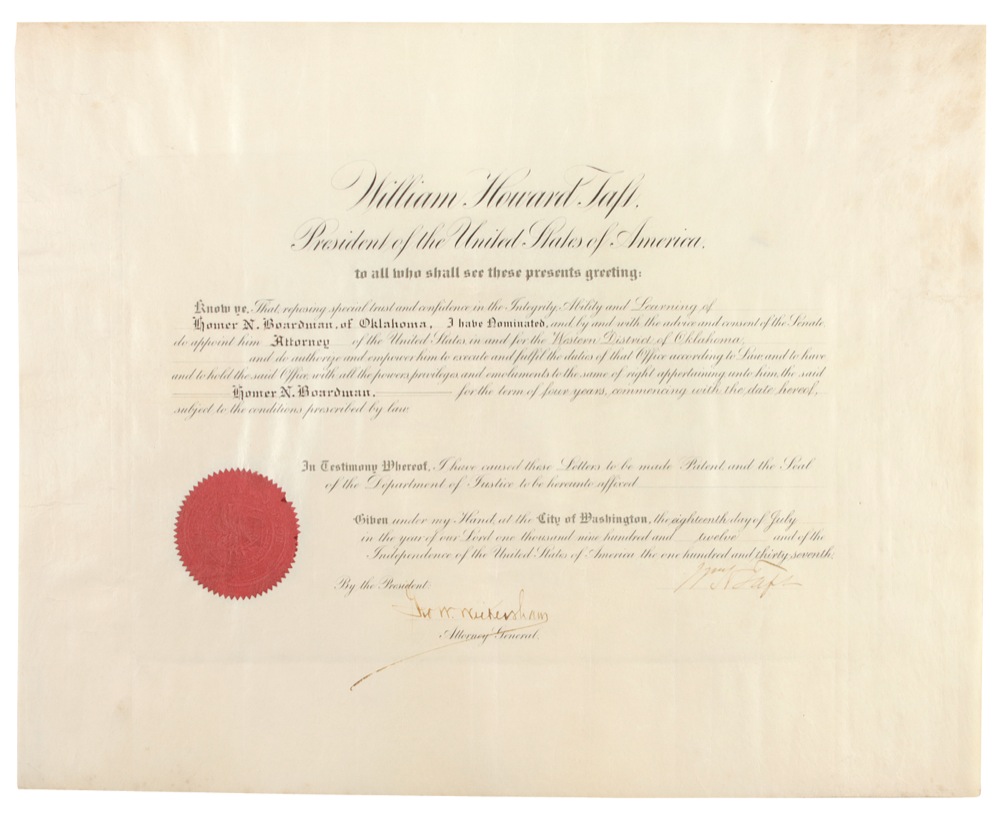 William Howard Taft,
President of the United States of America,
to all who shall see these presents greeting:
Know ye, That reposing special trust and confidence in the Integrity, Ability and Learning of
Homer N. Boardman, of Oklahoma, I have Nominated, and by and with the advice and consent of the Senate
do appoint him Attorney of the United States in and for the Western District of Oklahoma,
and do authorize and empower him to execute and fulfil the duties of that Office according to Law and to have
and to hold the said Office, with all the powers, privileges, and emoluments to the same of right appertaining unto him, the said
Homer N. Boardman, for the term of four years, commencing with the date hereof,
subject to the conditions prescribed by law.
In Testimony Whereof, I have caused these Letters to be made Patent and the Seal
of the Department of Justice to be hereunto affixed
Given under my Hand, at the City of Washington, the eighteenth day of July
in the year of our Lord one thousand nine hundred and twelve and of the
Independence of the United States of America the one hundred and thirty seventh.
Wm H Taft
By the President:
Geo W. Wickersham
Attorney General.